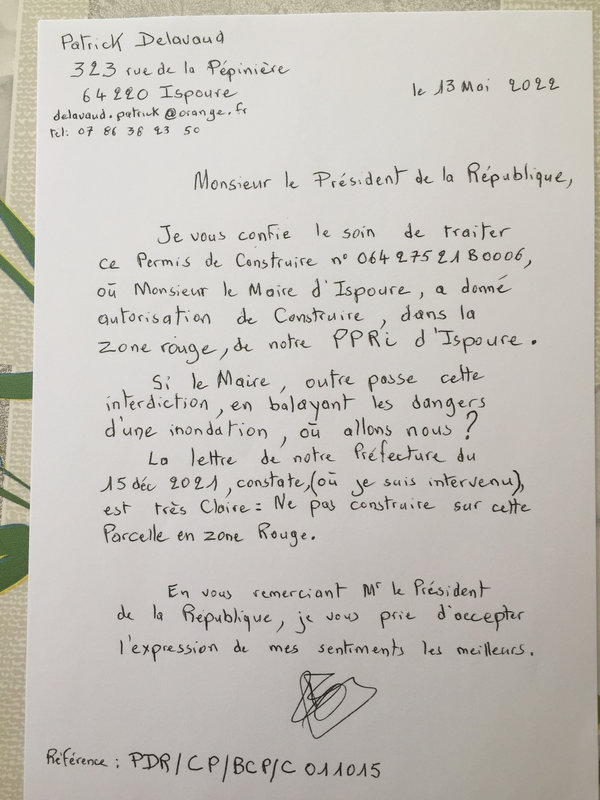 Patrick Delavaud
323 rue de la Pépinière
64220 Ispoure
delavaud.patrick@orange.fr
tel: 07 86 38 23 50
le 13 Mai 2022
Monsieur le Président de la République,
Je vous confie le soin de traiter
ce Permis de Construire n° 064 275 21 B0006,
où Monsieur le Maire d'Ispoure, a donné
autorisation de Construire, dans la
zone rouge, de notre PPRi d'Ispoure.
Si le Maire, outre passe cette
interdiction, en balayant les dangers
d'une inondation, où allons nous ?
La lettre de notre Préfecture du
15 déc 2021, constate, (où je suis intervenu),
est très Claire = Ne pas construire sur cette
Parcelle en zone Rouge.
En vous remerciant Mr le Président
de la République, je vous prie d'accepter
l'expression de mes sentiments les meilleurs.
Référence : PDR/CP/BCP/C 011015